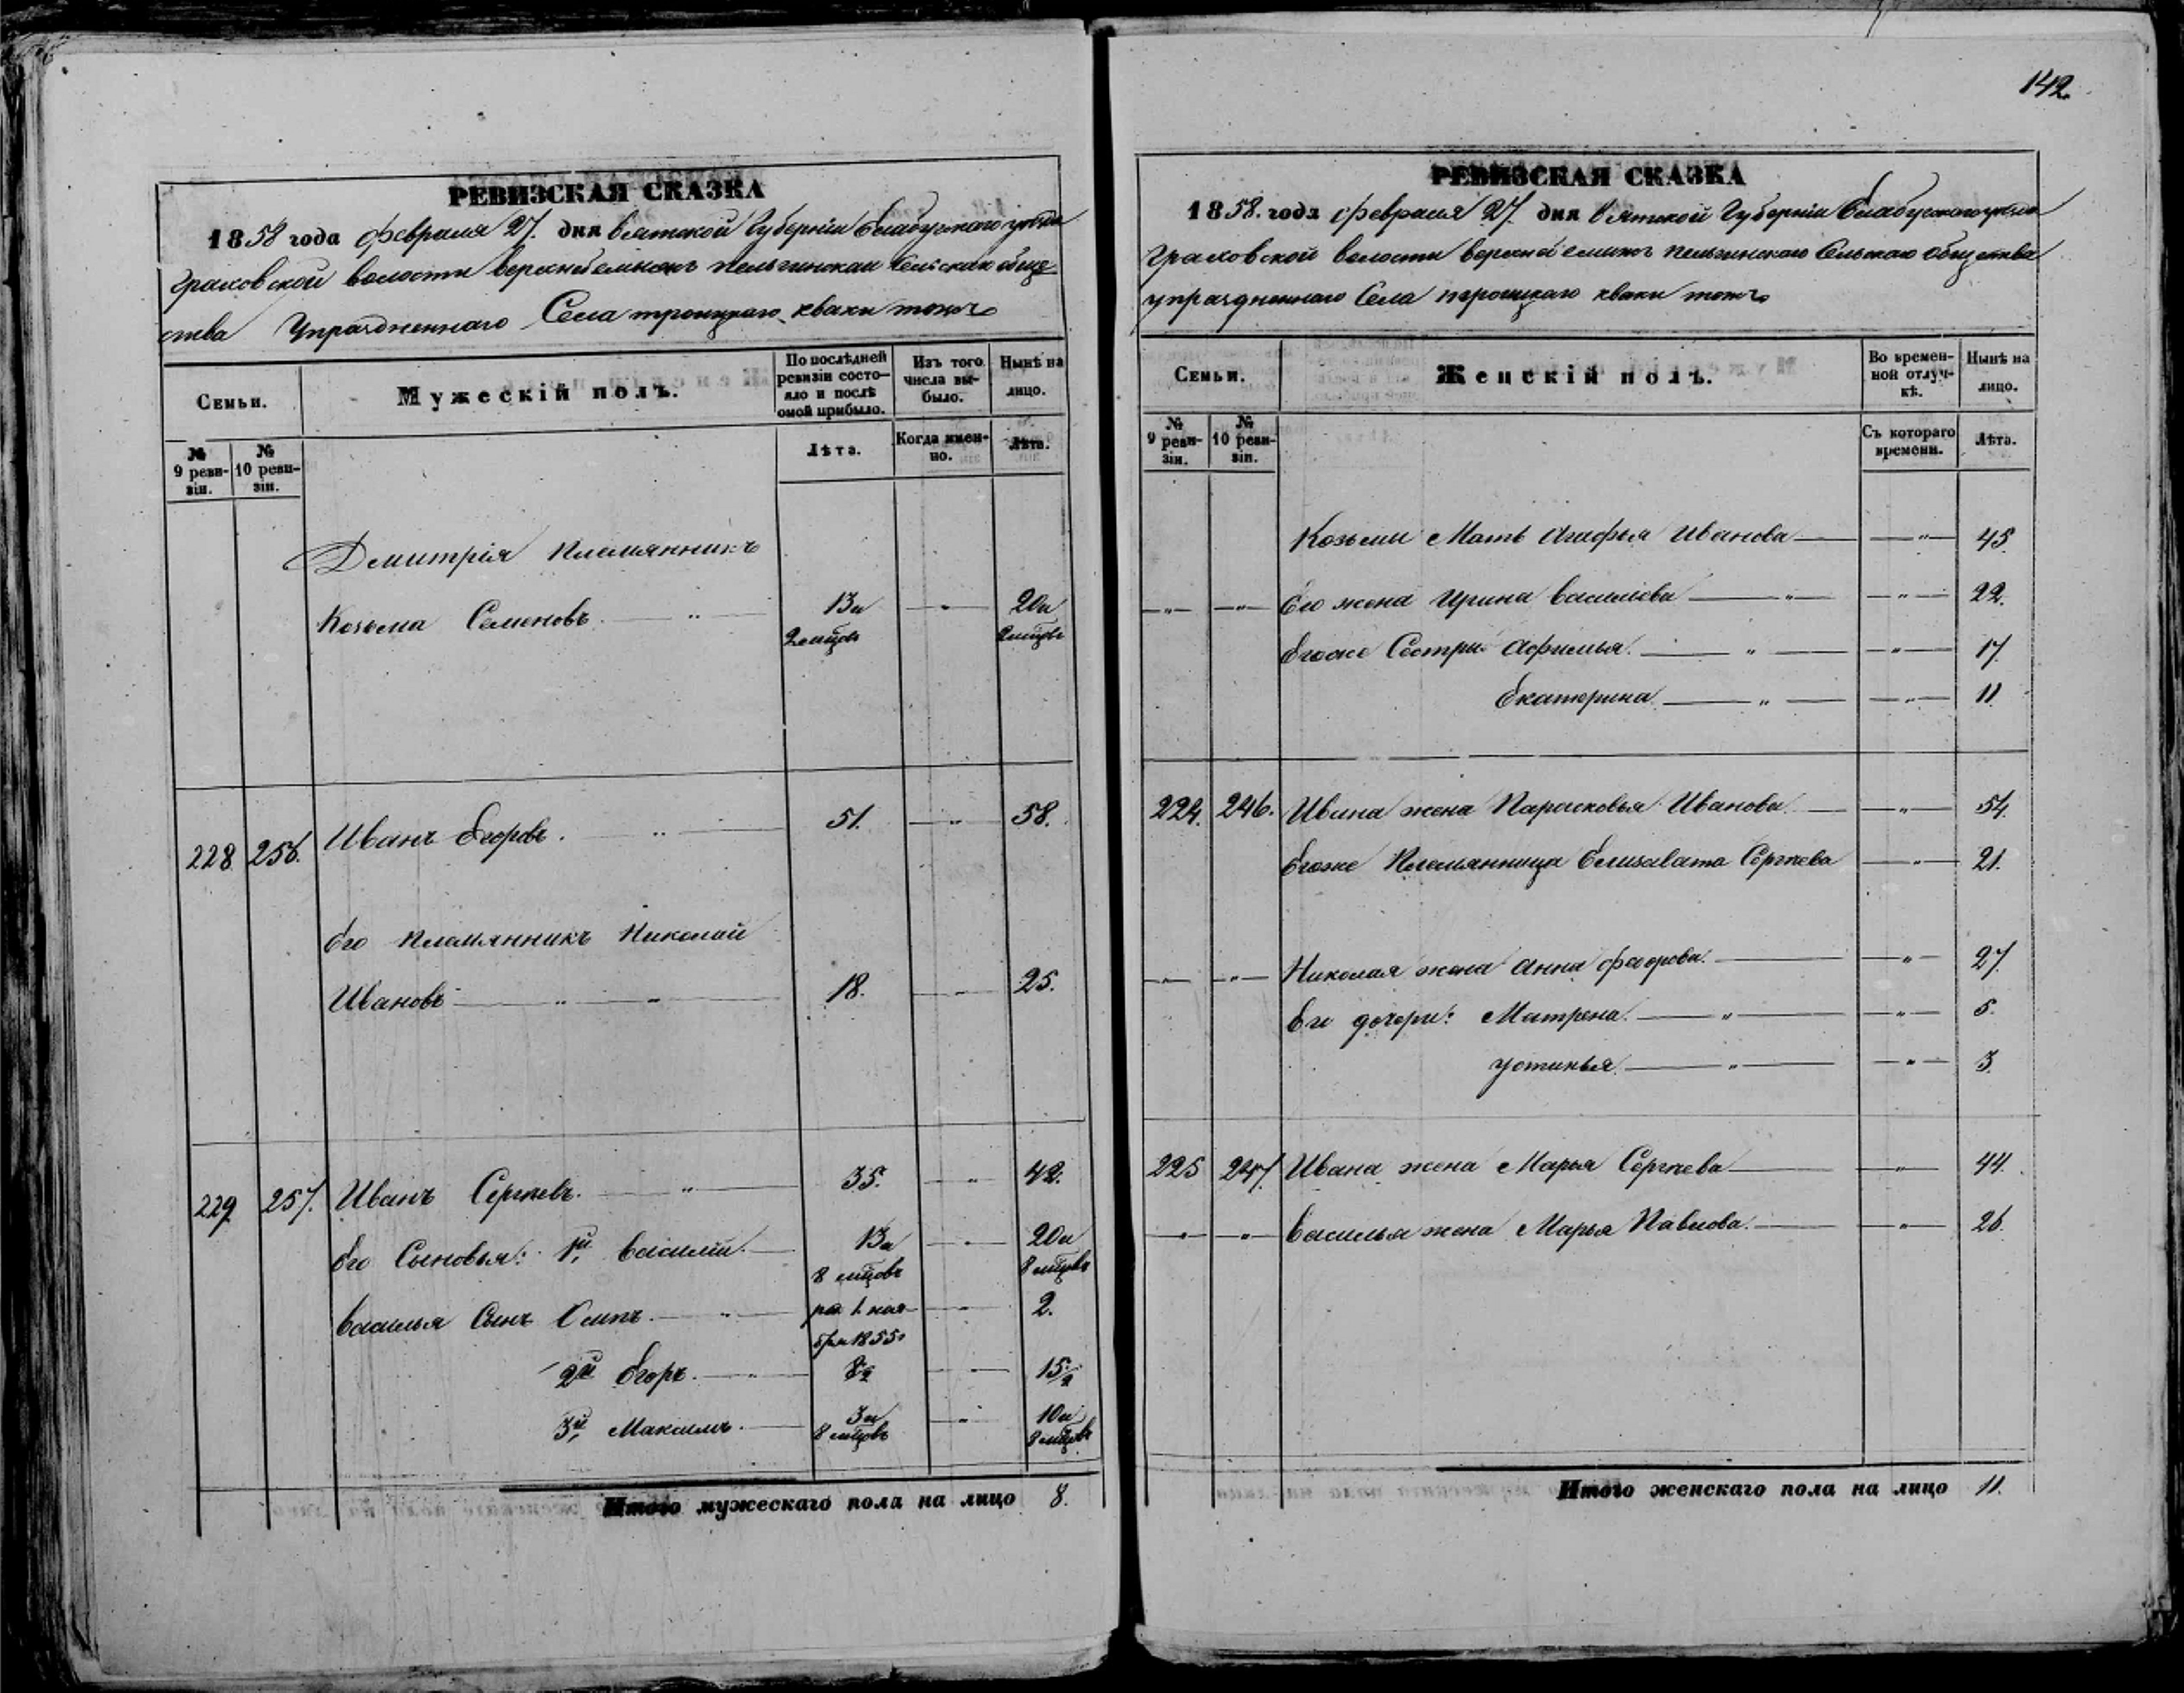 142.
РЕВИЗСКАЯ СКАЗКА
1858 года февраля 27. дня Вятской Губерніи Елабугскаго уезда
Граховской волости Пельгинскаи Сельскаи обще
ства Упраздненнаго Села троицкаго кваки тожъ
Семьи.
Мужескій полъ.
По послѣдней ревизіи состо-яло и послѣ оной прибыло.
Изъ того числа вы-было.
Нынѣ на лицо.
№ 9 реви-зіи.
№ 10 реви-зіи.
Лѣта.
Когда имен-но.
Лѣта.
Дмитрія племянникъ
Козьма Семеновъ. 13 и 2 мцовъ 20 и 2 мцовъ
228 256. Иванъ Егоровъ. 51. 58.
Его племянникъ Николай
Ивановъ 18. 25.
229. 257. Иванъ Сергѣевъ. 35. 42.
Его Сыновья: 1й Василій. 13 и 8 мцовъ 20 и 8 мцовъ
Василья Сынъ Осипъ. ро. 1. ноя бря 1855 2.
2й Егоръ. 8½ 15½
3й Максимъ. 3 и 8 мцовъ 10 и 8 мцовъ
Итого мужескаго пола на лицо 8.
РЕВИЗСКАЯ СКАЗКА
1858. года февраля 27. дня Вятской Губерніи Елабугскаго уезда
Граховской волости Пельгинскаго Сельскаго Общества
упраздненнаго Села троицкаго кваки тожъ
Семьи.
Женскій полъ.
Во времен-ной отлуч-кѣ.
Нынѣ на лицо.
№ 9 реви-зіи.
№ 10 реви-зіи.
Съ котораго времени.
Лѣта.
Козьмы Мать Агафья Иванова 45
Его жена Ирина Василова 22.
Егоже Сестры Афимья. 17.
Екатерина. 11
224. 246. Ивана жена Парасковья Иванова 54.
Егоже Племянница Елизавата Сергѣева 21.
Николая жена Анна Федорова. 27.
Его дочери: Матрена. 5.
Устинья. 3
225 247. Ивана жена Марья Сергѣева 44.
Василья жена Марья Павлова. 26.
Итого женскаго пола на лицо 11.